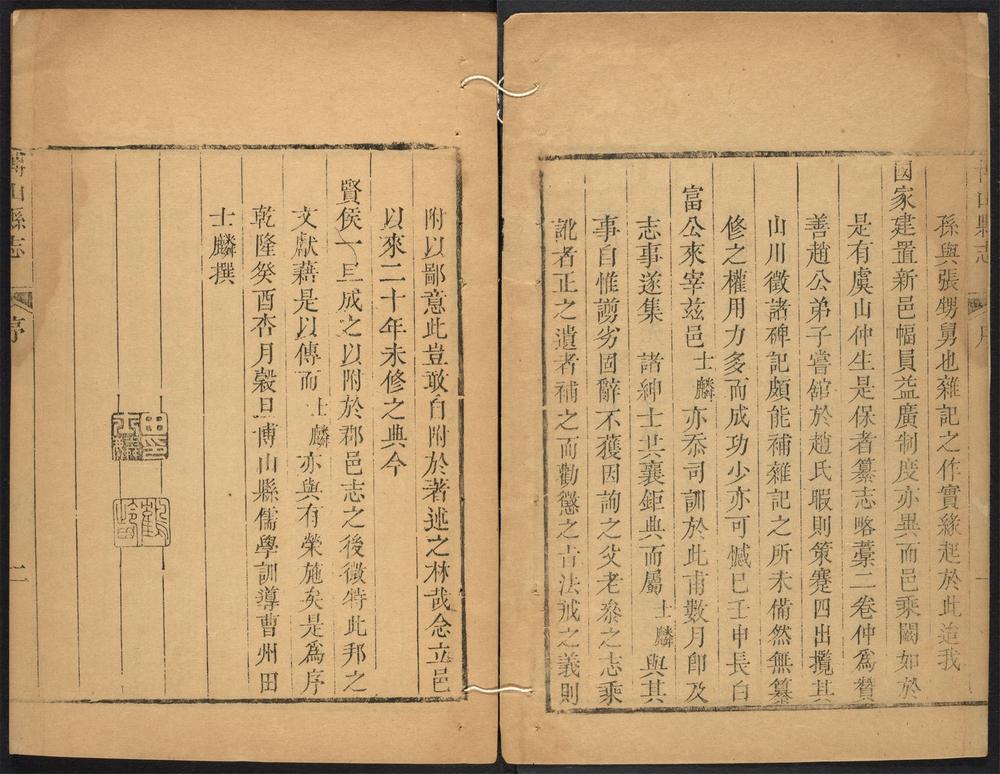 孫與張甥舅也雜記之作實緣起於此迨我
國家建置新邑幅員益廣制度亦異而邑乘闕如於
是有虞山仲生是保者纂志略藁二卷仲為贊
善趙公弟子嘗舘於趙氏暇則策蹇四出攬其
山川徵諸碑記頗能補雜記之所未備然無纂
修之權用力多而成功少亦可憾已壬申長白
富公來宰兹邑士麟亦忝司訓於此甫數月即及
志事遂集 諸紳士共襄鉅典而屬士麟與其
事自惟謭劣固辭不獲因詢之父老叅之志乘
訛者正之遺者補之而勸懲之古法戒之義則
博山縣志
序
附以鄙意此豈敢自附於著述之林哉念立邑
以來二十年未修之典今
賢侯一旦成之以附於郡邑志之後微特此邦之
文獻藉是以傳而士麟亦與有榮施矣是為序
乾隆癸酉杏月穀旦博山縣儒學訓導曹州田
士麟撰
博山縣志
序
二